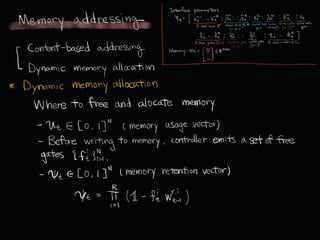 Memory addressing
Interface parameters
Content-based addressing
Dynamic memory allocation
* Dynamic memory allocation
Where to free and alocate memory
- u_t ∈ [0, 1]^N (memory usage vector)
- Before writing to memory, controller emits a set of free
gates {f_t^i}_{i=1}^N
- ψ_t ∈ [0, 1]^N (memory retention vector)
ψ_t = ∏_{i=1}^R (1 - f_t^i w_{t-1}^{r,i})